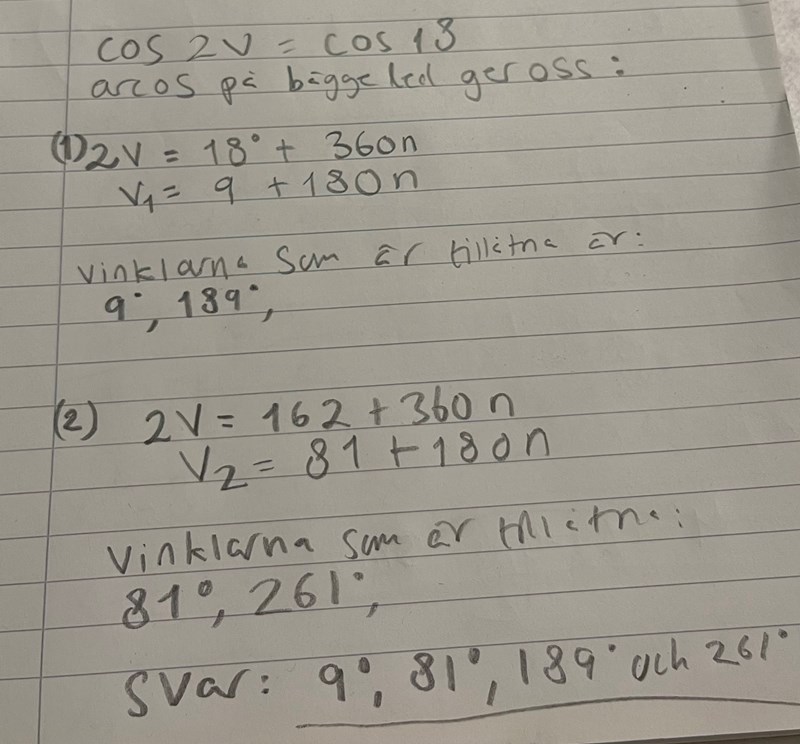 cos 2V = cos 18
arcos på bägge led ger oss:
(1) 2V = 18° + 360n
V₁ = 9 + 180n
Vinklarna som är tillåtna är:
9°, 189°,
(2) 2V = 162 + 360n
V₂ = 81 + 180n
Vinklarna som är tillåtna:
81°, 261°,
Svar: 9°, 81°, 189° och 261°